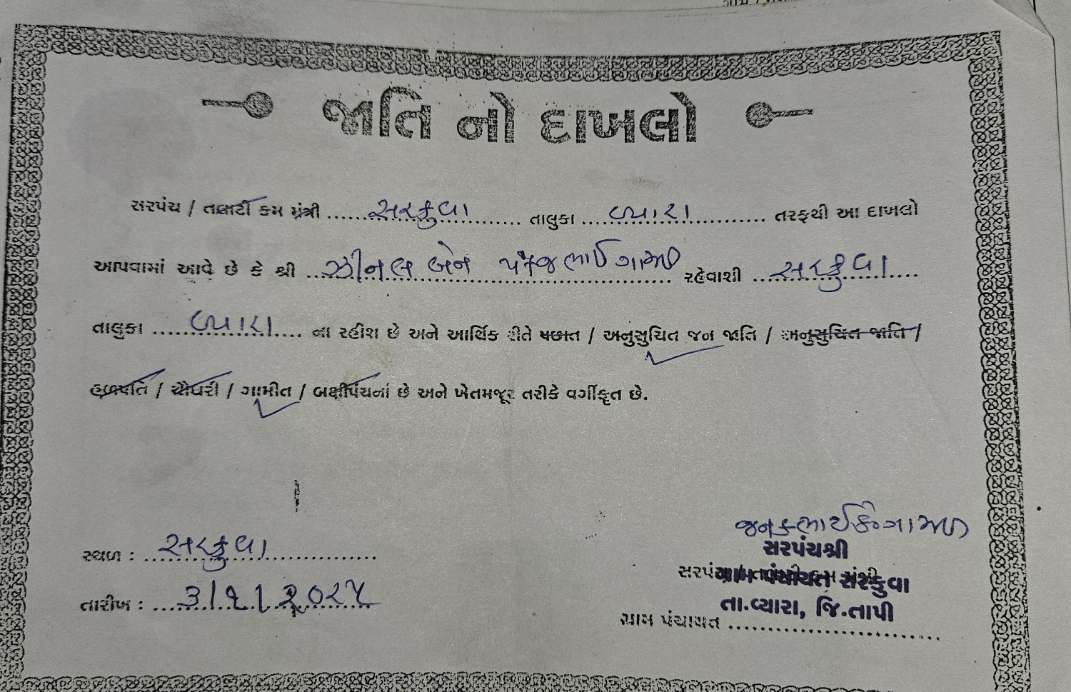 જાતિ નો દાખલો
સરપંચ / તલાટી કમ મંત્રી ..... સરકુવા ..... તાલુકા ..... વ્યારા ..... તરફથી આ દાખલો
આપવામાં આવે છે કે શ્રી ... ઝીનલ બેન પંકજભાઈ ગામીત ... રહેવાશી ... સરકુવા ...
તાલુકા ... વ્યારા ... ના રહીશ છે અને આર્થિક રીતે પછાત / અનુસુચિત જન જાતિ / અનુસુચિત જાતિ /
હળપતિ / ચૌધરી / ગામીત / બક્ષીપંચનાં છે અને ખેતમજૂર તરીકે વર્ગીકૃત છે.
સ્થળ : ... સરકુવા ...
તારીખ : ... 3/9/2024 ...
સરપંચશ્રી
ગ્રામ પંચાયત સરકુવા
તા.વ્યારા, જિ.તાપી
ગ્રામ પંચાયત .....